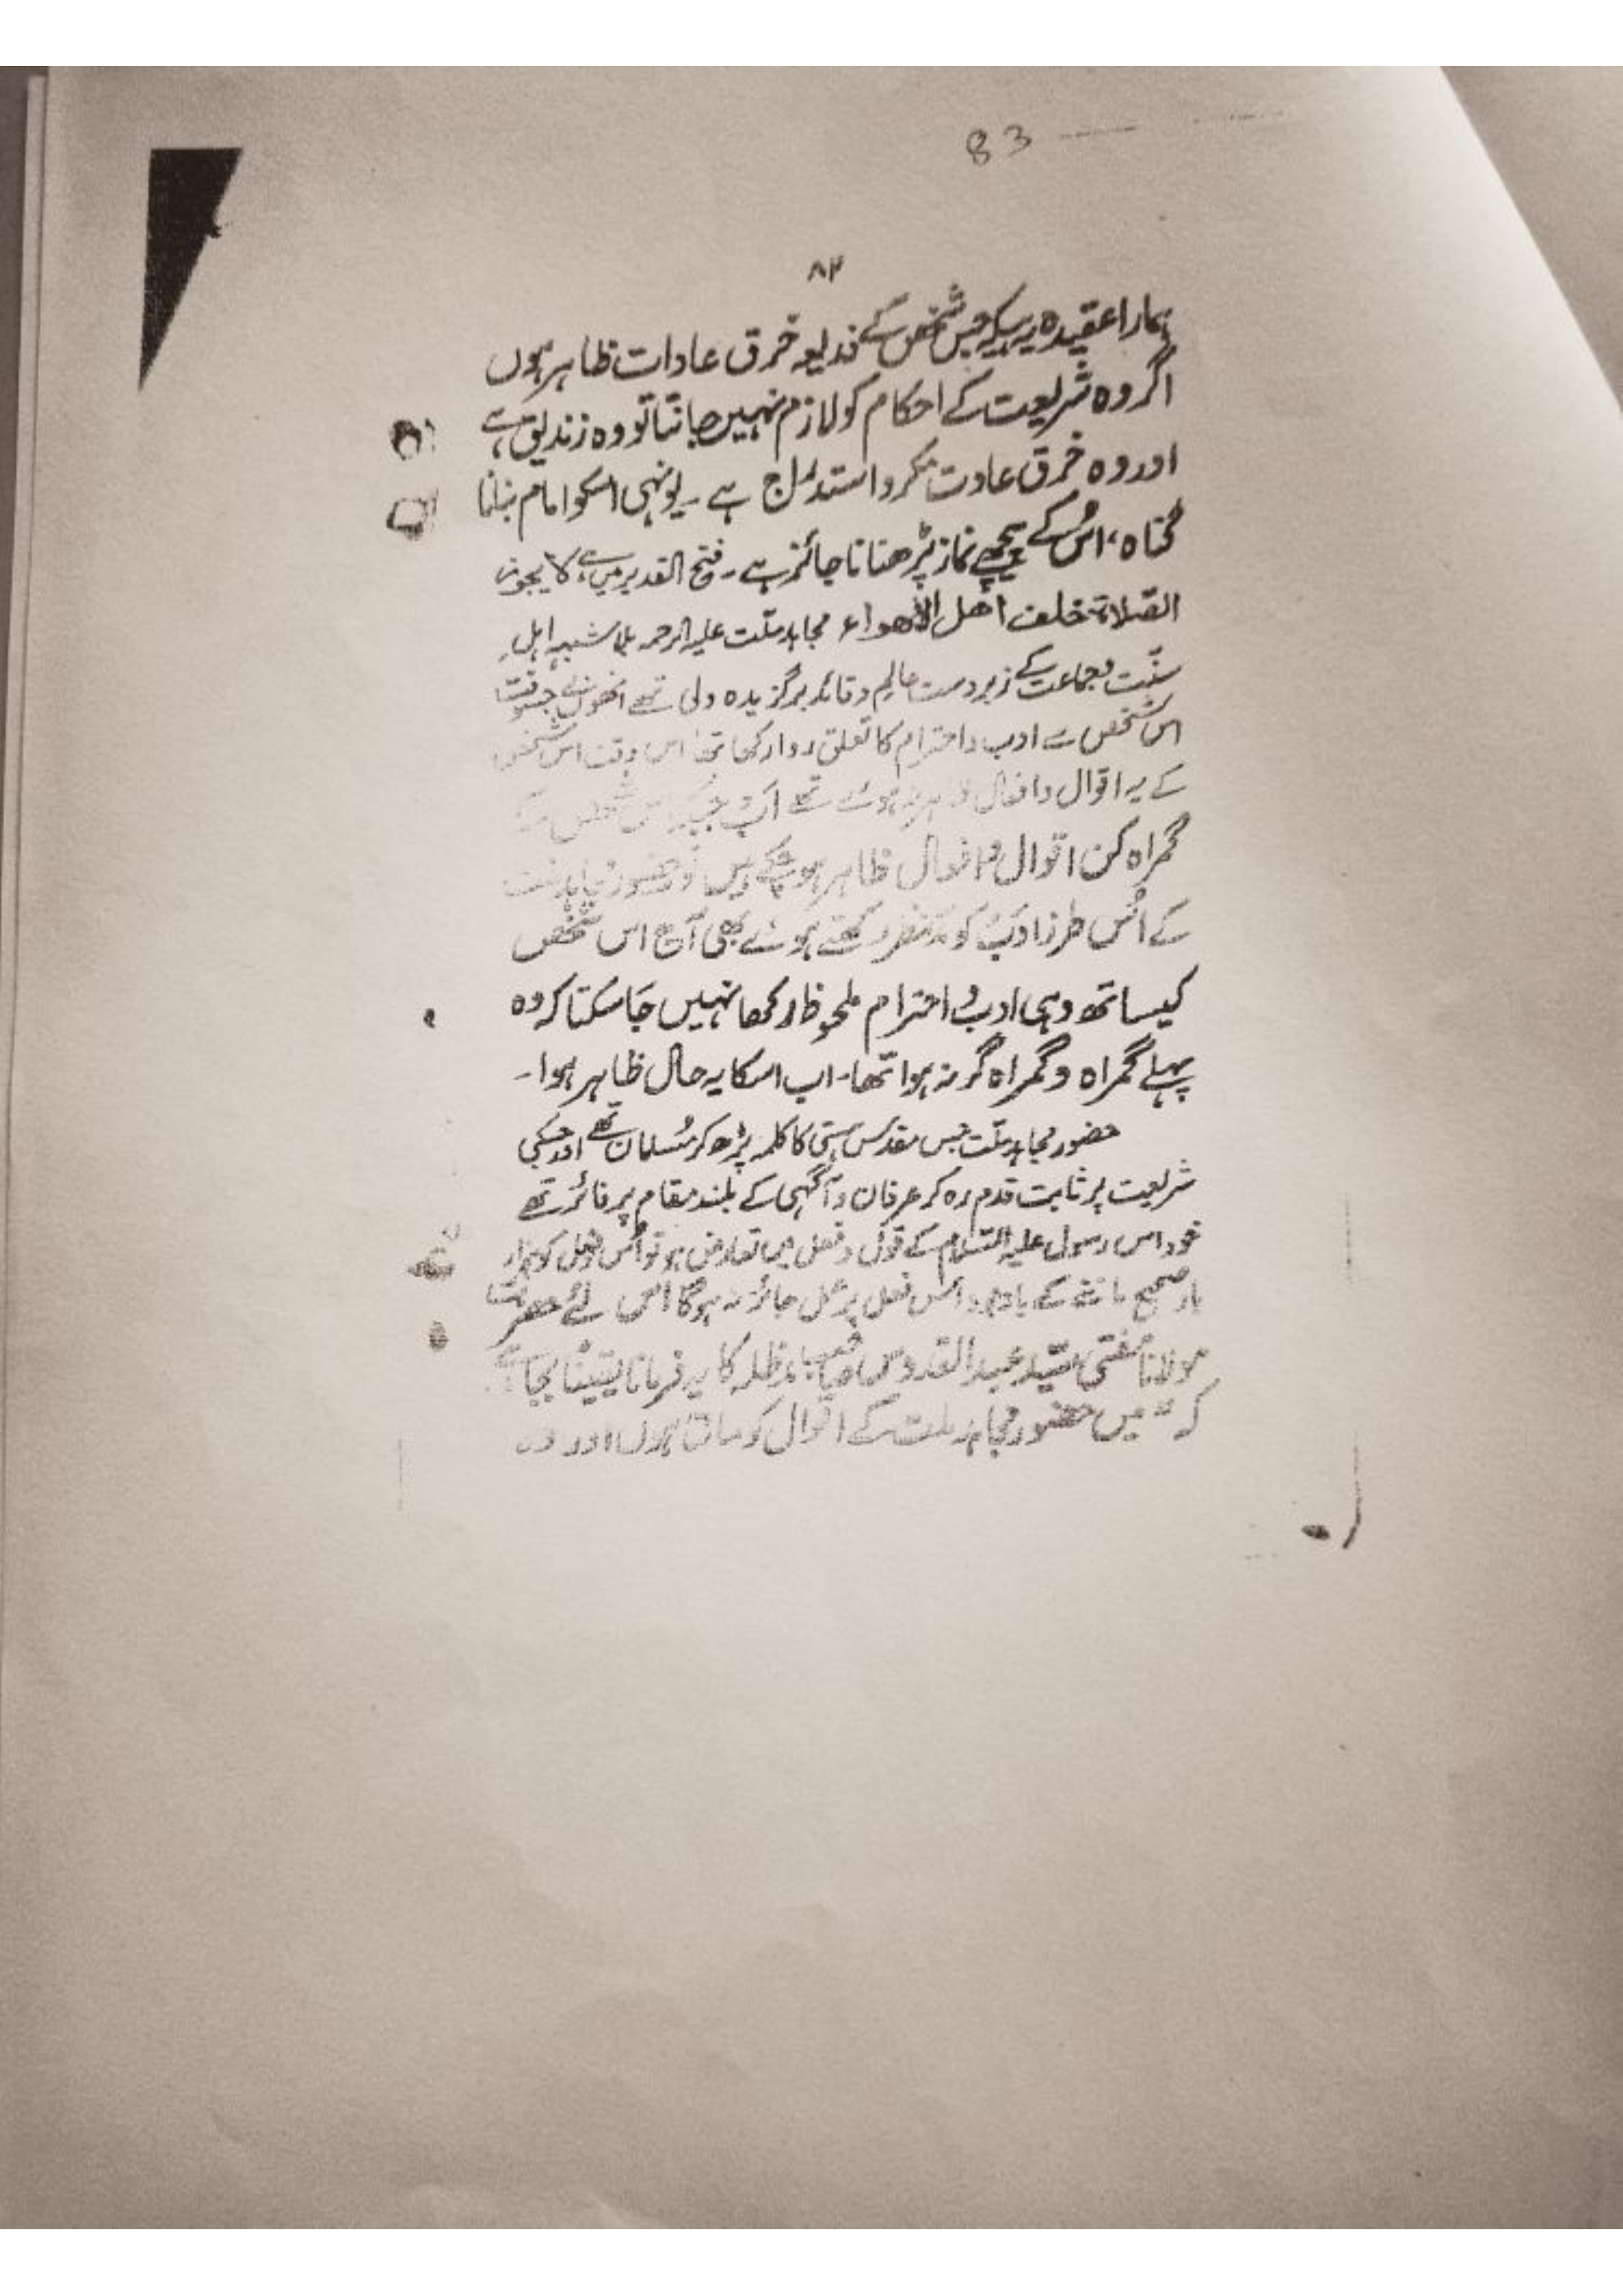 83
۸۳
ہمارا عقیدہ یہ ہیکہ جس شخص کے ذریعہ خرق عادات ظاہر ہوں
اگر وہ شریعت کے احکام کو لازم نہیں جانتا تو وہ زندیق ہے
اور وہ خرق عادت مکر و استدراج ہے ۔ یونہی اسکو امام بنانا
گناہ، اُس کے پیچھے نماز پڑھنا ناجائز ہے ۔ فتح القدیر میں ہے لا یجوز
الصّلاۃ خلف أھل الأھواء مجاہد ملّت علیہ الرحمہ بلا شبہہ اہلِ
سنّت وجماعت کے زبردست عالم و قائد برگزیدہ ولی تھے انھوں نے جسوقت
اس شخص سے ادب و احترام کا تعلق روا رکھا تھا اس وقت اس شخص
کے یہ اقوال و افعال ظاہر نہ ہوئے تھے اب جبکہ اس شخص کے
گمراہ کن اقوال و افعال ظاہر ہو چکے ہیں تو حضور مجاہد ملت
کے اُس طرز ادب کو مدنظر رکھتے ہوئے بھی آج اس شخص
کیساتھ وہی ادب و احترام ملحوظ رکھا نہیں جا سکتا کہ وہ
پہلے گمراہ و گمراہ گر نہ ہوا تھا۔ اب اسکا یہ حال ظاہر ہوا ۔
حضور مجاہد ملّت جس مقدس ہستی کا کلمہ پڑھ کر مُسلمان تھے اور جسکی
شریعت پر ثابت قدم رہ کر عرفان و آگہی کے بلند مقام پر فائز تھے
خود اس رسول علیہ السّلام کے قول و فعل میں تعارض ہو تو اُس فعل کو ہزار
بار صحیح ماننے کے باوجود اُس فعل پر عمل جائز نہ ہوگا اسی لئے حضرت
مولانا مفتی سیّد عبد القدوس صاحب مدظلہ کا یہ فرمانا یقینًا بجا ہے
کہ " میں حضور مجاہد ملت کے اقوال کو مانتا ہوں اور وہ